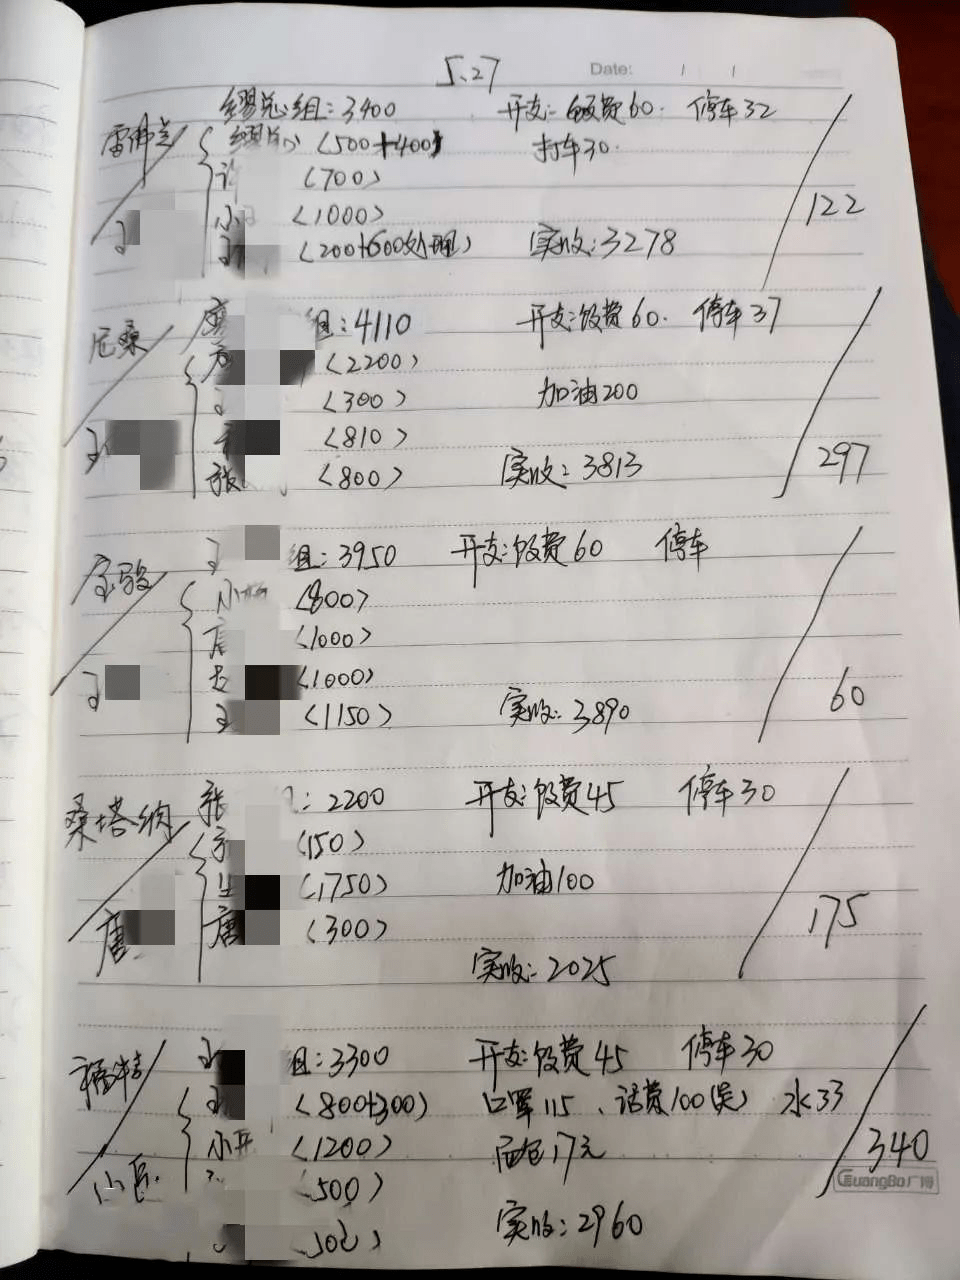 5.27 Date: / /
缪总组:3400 开支:饭费60. 停车32
雷佛兰
缪总 (500+400) 打车30.
(700)
122
小 (1000)
王 (200+600处理) 实收:3278
组:4110 开支:饭费60. 停车37
尼桑
(2200)
(300) 加油200
王
(810)
张 (800) 实收:3813
297
王 组:3950 开支:饭费60 停车
宝骏
小杨 (800)
唐 (1000)
王
(1000)
王 (1150) 实收:3890
60
张 组:2200 开支:饭费45 停车30
桑塔纳
(150)
(1750) 加油100
唐
唐 (300)
175
实收:2025
王 组:3300 开支:饭费45 停车30
福特
王 (800+300) 口罩115、话费100(吴) 水33
小 (1200) 17元
340
小 (500)
GuangBo广博
实收:2960